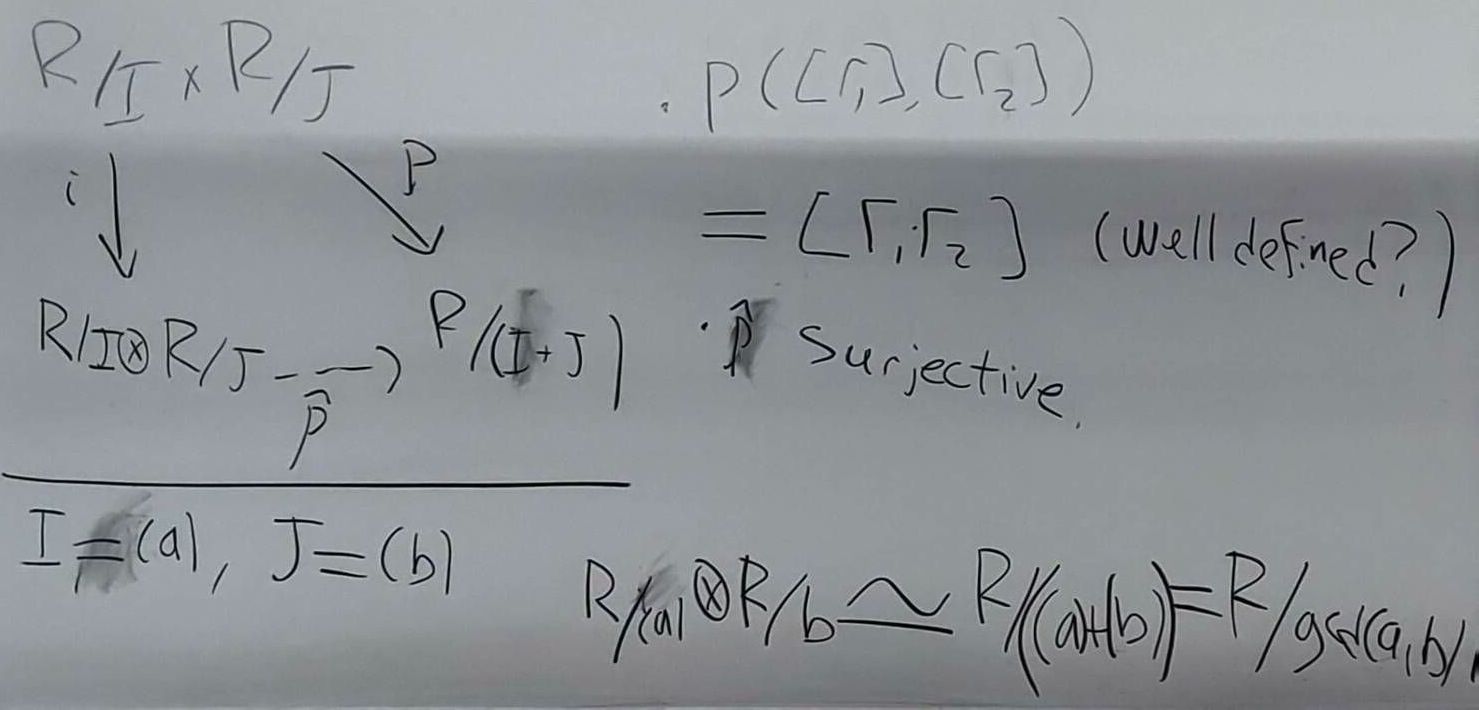 R/I × R/J
i
p
R/I⊗R/J --→ R/(I+J)
p̂
· p([r₁],[r₂])
= [r₁·r₂] (well defined?)
· p̂ surjective.
I=(a), J=(b)
R/(a)⊗R/b ≃ R/((a)+(b))=R/gcd(a,b)